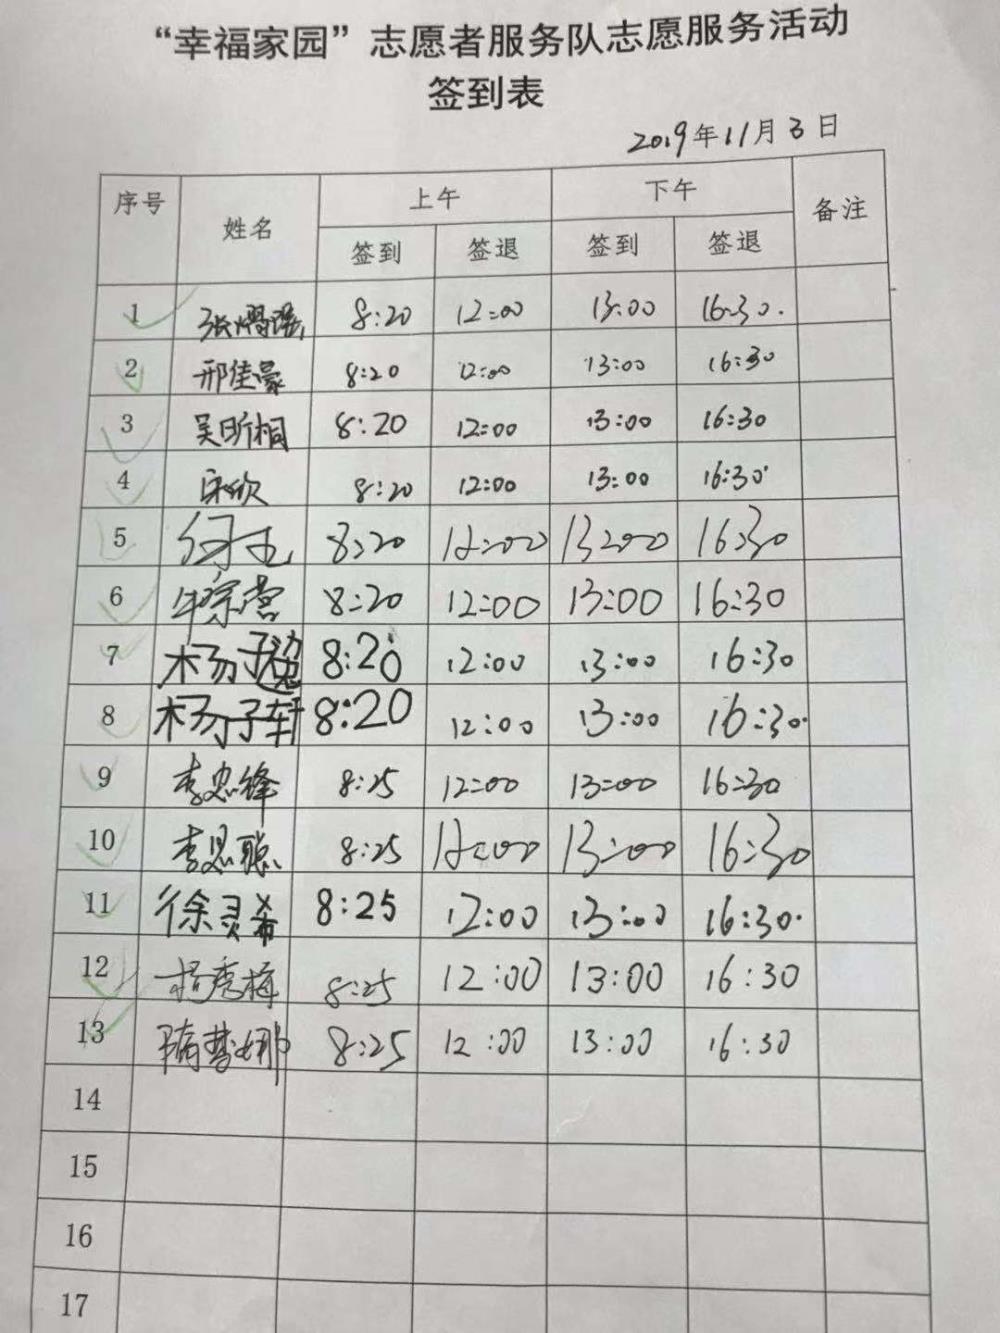 “幸福家园”志愿者服务队志愿服务活动
签到表
2019年11月3日
序号 姓名 上午 下午 备注
签到 签退 签到 签退
1 8:20 12:00 13:00 16:30.
2 邢佳豪 8:20 12:00 13:00 16:30
3 吴昕桐 8:20 12:00 13:00 16:30
4 宋欣 8:20 12:00 13:00 16:30
5 8:20 12:00 13:00 16:30
6 牟宗营 8:20 12:00 13:00 16:30
7 杨子逸 8:20 12:00 13:00 16:30
8 杨子轩 8:20 12:00 13:00 16:30
9 李忠锋 8:25 12:00 13:00 16:30
10 李思聪 8:25 12:00 13:00 16:30
11 徐灵希 8:25 12:00 13:00 16:30
12 杨秀梅 8:25 12:00 13:00 16:30
13 隋梦娜 8:25 12:00 13:00 16:30
14
15
16
17